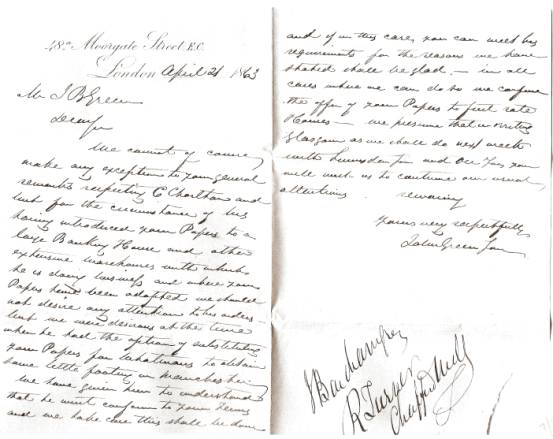 48a Moorgate Street E.C.
London April 21 1863
Mr J B Green
Dear Sir
We cannot of course
make any exception to your general
remarks respecting C Chartham and
but for the circumstance of his
having introduced your Papers to a
large Banking House and other
extensive warehouses with which
he is doing business and where your
Papers have been adopted we should
not desire any attention to his orders
but we were desirous at the time
when he had the option of substituting
your Papers for Whatmans to obtain
some little footing in
We have given him to understand
that he must conform to your Terms
and we take care this shall be done
and if in this case you can meet his
requirements for the reasons we have
stated shall be glad — in all
cases where we can do so we confine
the offer of your Papers to first rate
Houses — we presume that in writing
Glasgow as we shall do next week
with and you
will wish us to continue our usual
attentions remaining
Yours very respectfully
John Green Jun
R Turner